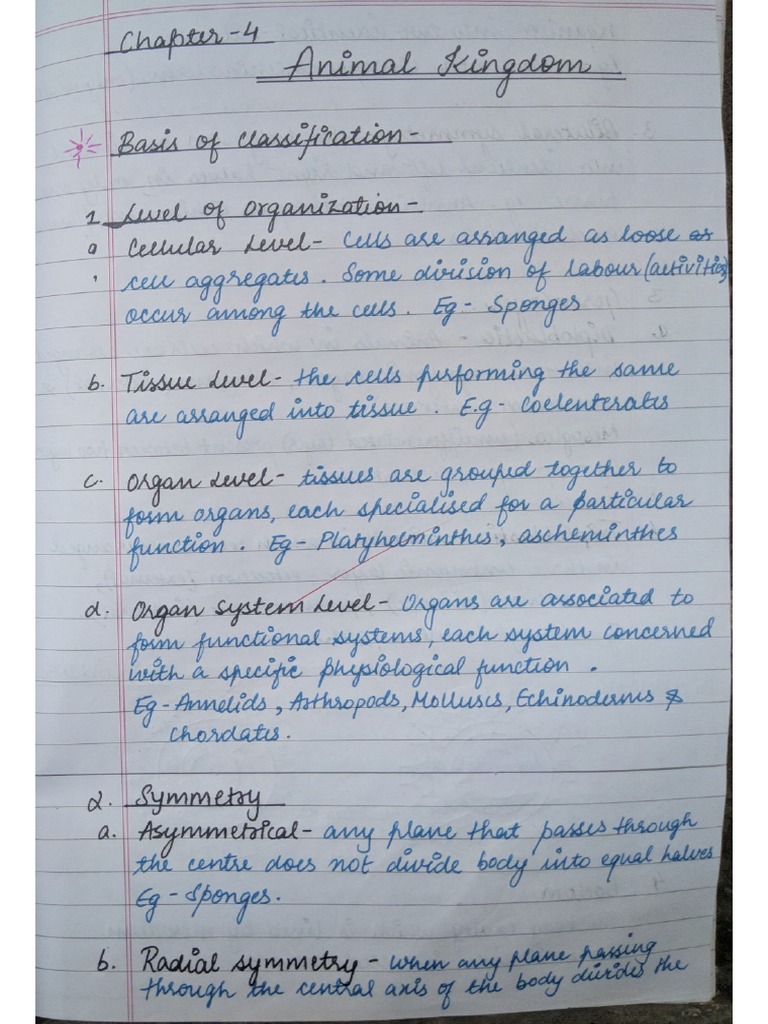 Chapter-4
Animal Kingdom
Basis of classification-
1 Level of organization-
a Cellular Level- Cells are arranged as loose
cell aggregates. Some division of labour (activities)
occur among the cells. Eg- Sponges
b. Tissue Level- the cells performing the same
are arranged into tissue. E.g- Coelenterates
c. Organ Level- tissues are grouped together to
form organs, each specialised for a particular
function. Eg- Platyhelminthes, aschelminthes
d. Organ System Level- Organs are associated to
form functional systems, each system concerned
with a specific physiological function.
Eg- Annelids, Arthropods, Molluscs, Echinoderms &
chordates.
2. Symmetry
a. Asymmetrical- any plane that passes through
the centre does not divide body into equal halves
Eg- Sponges.
b. Radial symmetry- when any plane passing
through the central axis of the body divides the